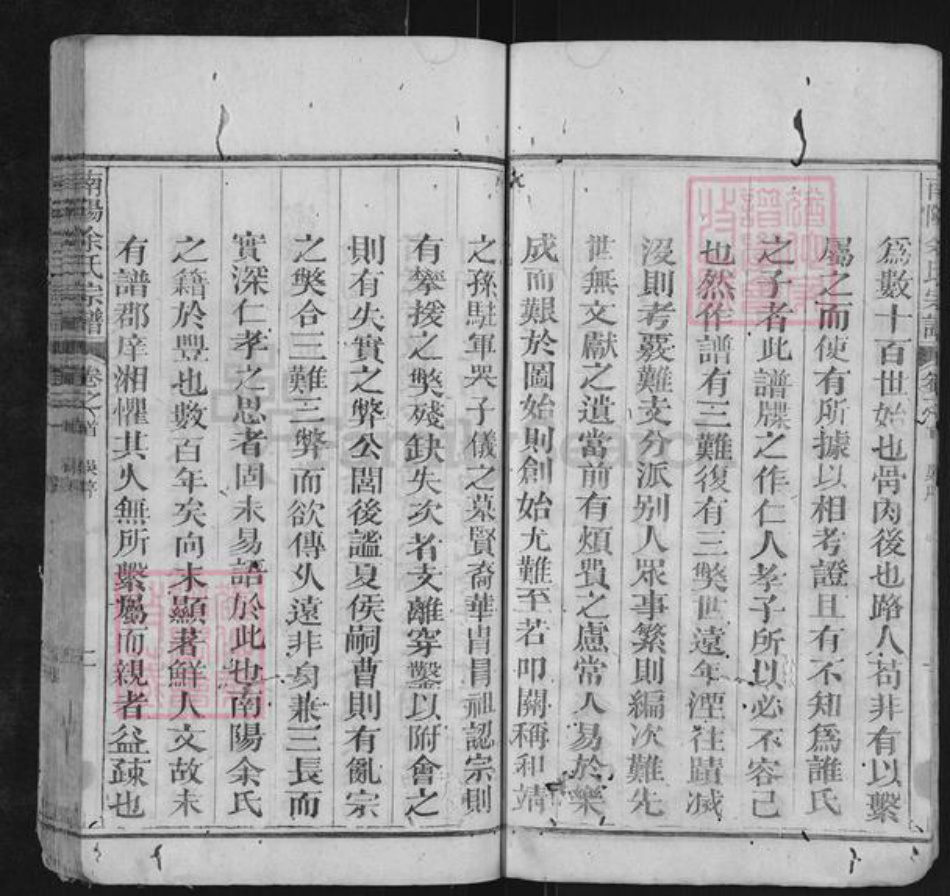 爲數十百世始也骨肉後也路人茍非有以繫
屬之而使有所據以相考證且有不知爲誰氏
之子者此譜牒之作仁人孝子所以必不容已
也然作譜有三難復有三獘世遠年湮往蹟滅
沒則考覈難支分派别人眾事繁則編次難先
世無文獻之遺當前有煩費之慮常人易於樂
成而艱於圖始則創始尤難至若叩關稱和靖
之孫駐軍哭子儀之墓賢裔華冑冐祖認宗則
有攀援之獘殘缺失次者支離穿鑿以附會之
則有失實之弊公閭後謐夏侯嗣曹則有亂宗
之獘合三難三弊而欲傳久遠非夠兼三長而
實深仁孝之思者固未易語於此也南陽余氏
之籍於豐也數百年矣向未顯著鮮人文故未
有譜郡庠湘懼其久無所繫屬而親者益疎也
南陽余氏宗譜 卷之首